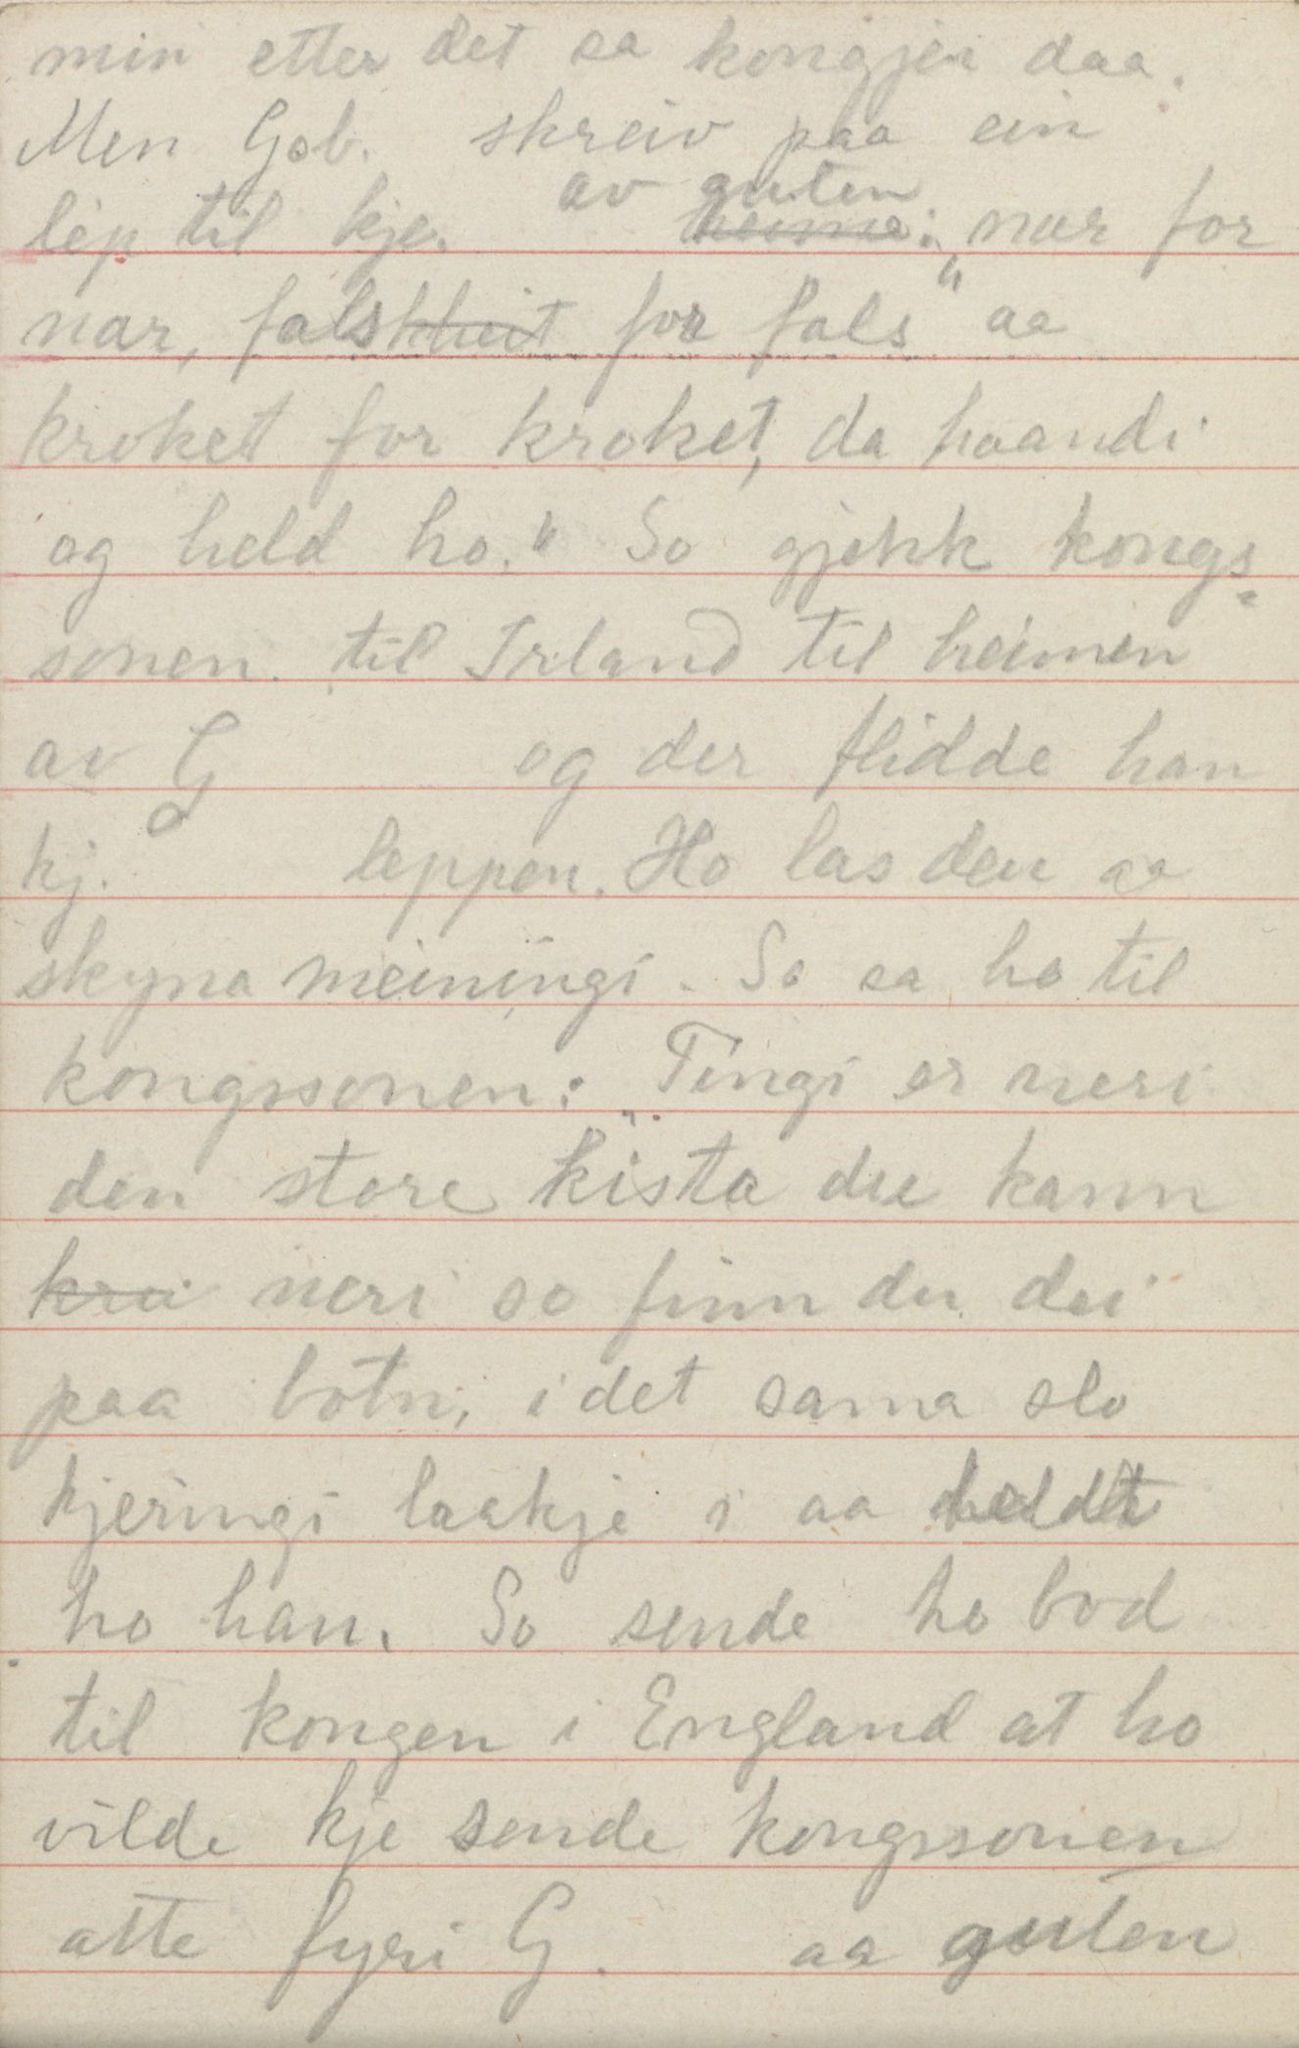 min etter det sa kongjen daa.
Men Gob. skreiv paa ein
av guten
lep til kje. heime: „nar for
nar, falskheit for fals" aa
kroket for kroket, da haandi
og held ho." So gjekk kongs-
sonen til Irland til heimen
av G og der flidde han
kj. leppen. Ho las den aa
skyna meiningi. So sa ho til
kongssonen: „Tingi er neri
den store kista du kann
neri so finn du dei
paa botn, i det sama slo
kjeringi laakje i aa heldt
ho han. So sende ho bod
til kongen i England at ho
vilde kje sende kongssonen
atte fyri G. aa guten